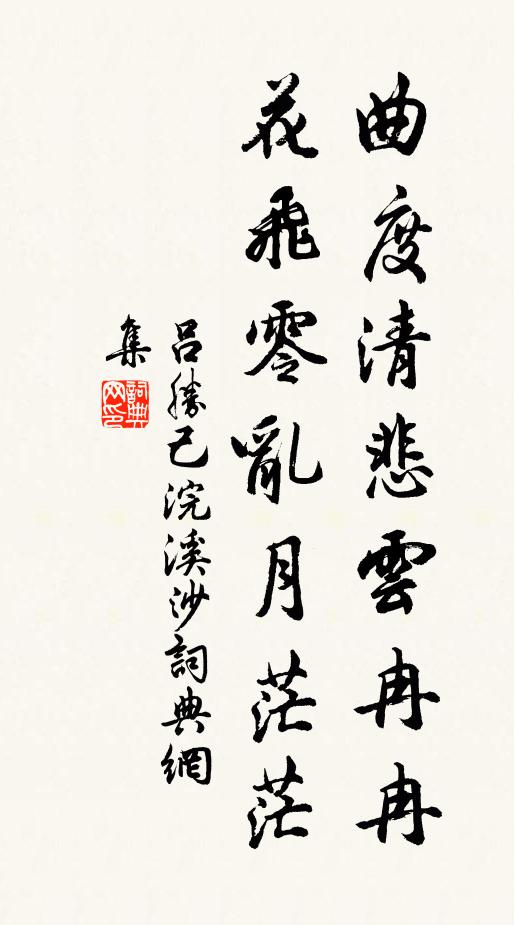 曲度清悲雲冉冉
花飛零亂月茫茫
呂勝己浣溪沙詞典網
集
詞典網印